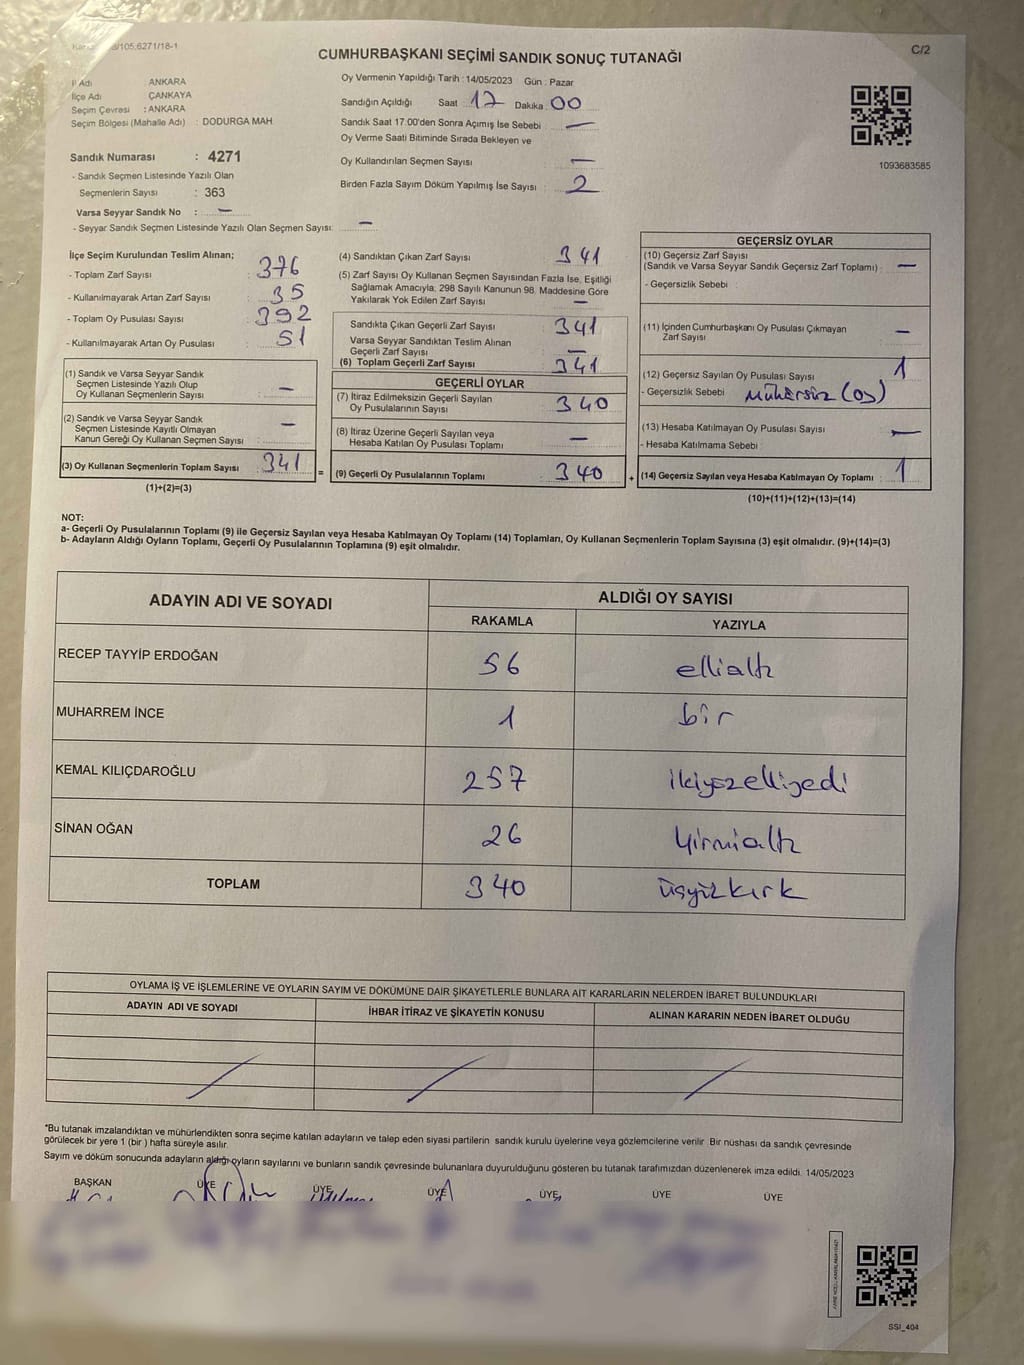 /105.6271/18-1
C/2
CUMHURBAŞKANI SEÇİMİ SANDIK SONUÇ TUTANAĞI
İl Adı : ANKARA
İlçe Adı : ÇANKAYA
Seçim Çevresi : ANKARA
Seçim Bölgesi (Mahalle Adı) : DODURGA MAH.
Oy Vermenin Yapıldığı Tarih : 14/05/2023 Gün : Pazar
Sandığın Açıldığı Saat : 17 Dakika : 00
Sandık Saat 17:00'den Sonra Açımış İse Sebebi : —
Oy Verme Saati Bitiminde Sırada Bekleyen ve
Oy Kullandırılan Seçmen Sayısı —
Birden Fazla Sayım Döküm Yapılmış İse Sayısı : 2
1093683585
Sandık Numarası : 4271
- Sandık Seçmen Listesinde Yazılı Olan
Seçmenlerin Sayısı : 363
Varsa Seyyar Sandık No : —
- Seyyar Sandık Seçmen Listesinde Yazılı Olan Seçmen Sayısı: —
İlçe Seçim Kurulundan Teslim Alınan;
- Toplam Zarf Sayısı : 376
- Kullanılmayarak Artan Zarf Sayısı : 35
- Toplam Oy Pusulası Sayısı : 392
- Kullanılmayarak Artan Oy Pusulası : 51
(1) Sandık ve Varsa Seyyar Sandık
Seçmen Listesinde Yazılı Olup
Oy Kullanan Seçmenlerin Sayısı : —
(2) Sandık ve Varsa Seyyar Sandık
Seçmen Listesinde Kayıtlı Olmayan
Kanun Gereği Oy Kullanan Seçmen Sayısı : —
(3) Oy Kullanan Seçmenlerin Toplam Sayısı : 341
(1)+(2)=(3)
=
(4) Sandıktan Çıkan Zarf Sayısı : 341
(5) Zarf Sayısı Oy Kullanan Seçmen Sayısından Fazla İse, Eşitliği
Sağlamak Amacıyla; 298 Sayılı Kanunun 98. Maddesine Göre
Yakılarak Yok Edilen Zarf Sayısı : —
Sandıkta Çıkan Geçerli Zarf Sayısı : 341
Varsa Seyyar Sandıktan Teslim Alınan
Geçerli Zarf Sayısı : —
(6) Toplam Geçerli Zarf Sayısı : 341
GEÇERLİ OYLAR
(7) İtiraz Edilmeksizin Geçerli Sayılan
Oy Pusulalarının Sayısı : 340
(8) İtiraz Üzerine Geçerli Sayılan veya
Hesaba Katılan Oy Pusulası Toplamı : —
(9) Geçerli Oy Pusulalarının Toplamı : 340
+
GEÇERSİZ OYLAR
(10) Geçersiz Zarf Sayısı
(Sandık ve Varsa Seyyar Sandık Geçersiz Zarf Toplamı) : —
- Geçersizlik Sebebi :
(11) İçinden Cumhurbaşkanı Oy Pusulası Çıkmayan
Zarf Sayısı : —
(12) Geçersiz Sayılan Oy Pusulası Sayısı : 1
- Geçersizlik Sebebi : Mühürsüz (oy)
(13) Hesaba Katılmayan Oy Pusulası Sayısı : —
- Hesaba Katılmama Sebebi :
(14) Geçersiz Sayılan veya Hesaba Katılmayan Oy Toplamı : 1
(10)+(11)+(12)+(13)=(14)
NOT:
a- Geçerli Oy Pusulalarının Toplamı (9) ile Geçersiz Sayılan veya Hesaba Katılmayan Oy Toplamı (14) Toplamları, Oy Kullanan Seçmenlerin Toplam Sayısına (3) eşit olmalıdır. (9)+(14)=(3)
b- Adayların Aldığı Oyların Toplamı, Geçerli Oy Pusulalarının Toplamına (9) eşit olmalıdır.
ADAYIN ADI VE SOYADI
ALDIĞI OY SAYISI
RAKAMLA YAZIYLA
RECEP TAYYİP ERDOĞAN 56 ellialtı
MUHARREM İNCE 1 bir
KEMAL KILIÇDAROĞLU 257 ikiyüzelliyedi
SİNAN OĞAN 26 Yirmialtı
TOPLAM 340 üçyüzkırk
OYLAMA İŞ VE İŞLEMLERİNE VE OYLARIN SAYIM VE DÖKÜMÜNE DAİR ŞİKAYETLERLE BUNLARA AİT KARARLARIN NELERDEN İBARET BULUNDUKLARI
ADAYIN ADI VE SOYADI İHBAR İTİRAZ VE ŞİKAYETİN KONUSU ALINAN KARARIN NEDEN İBARET OLDUĞU
*Bu tutanak imzalandıktan ve mühürlendikten sonra seçime katılan adayların ve talep eden siyasi partilerin sandık kurulu üyelerine veya gözlemcilerine verilir. Bir nüshası da sandık çevresinde
görülecek bir yere 1 (bir ) hafta süreyle asılır.
Sayım ve döküm sonucunda adayların aldığı oyların sayılarını ve bunların sandık çevresinde bulunanlara duyurulduğunu gösteren bu tutanak tarafımızdan düzenlenerek imza edildi. 14/05/2023
BAŞKAN ÜYE ÜYE ÜYE ÜYE ÜYE ÜYE
SSI_404